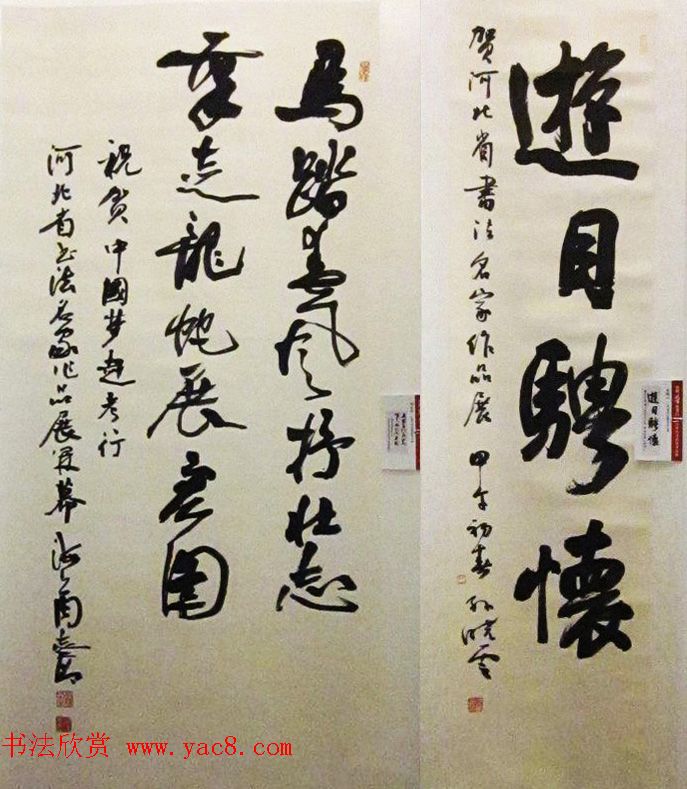 馬踏春風抒壯志
筆走龍蛇展宏圖
祝贺中國梦赶考行
河北省书法名家作品展開幕
遊目騁懷
賀河北省書法名家作品展 甲午初春 孙晓云
遊目騁懷
书法欣赏 www.yac8.com